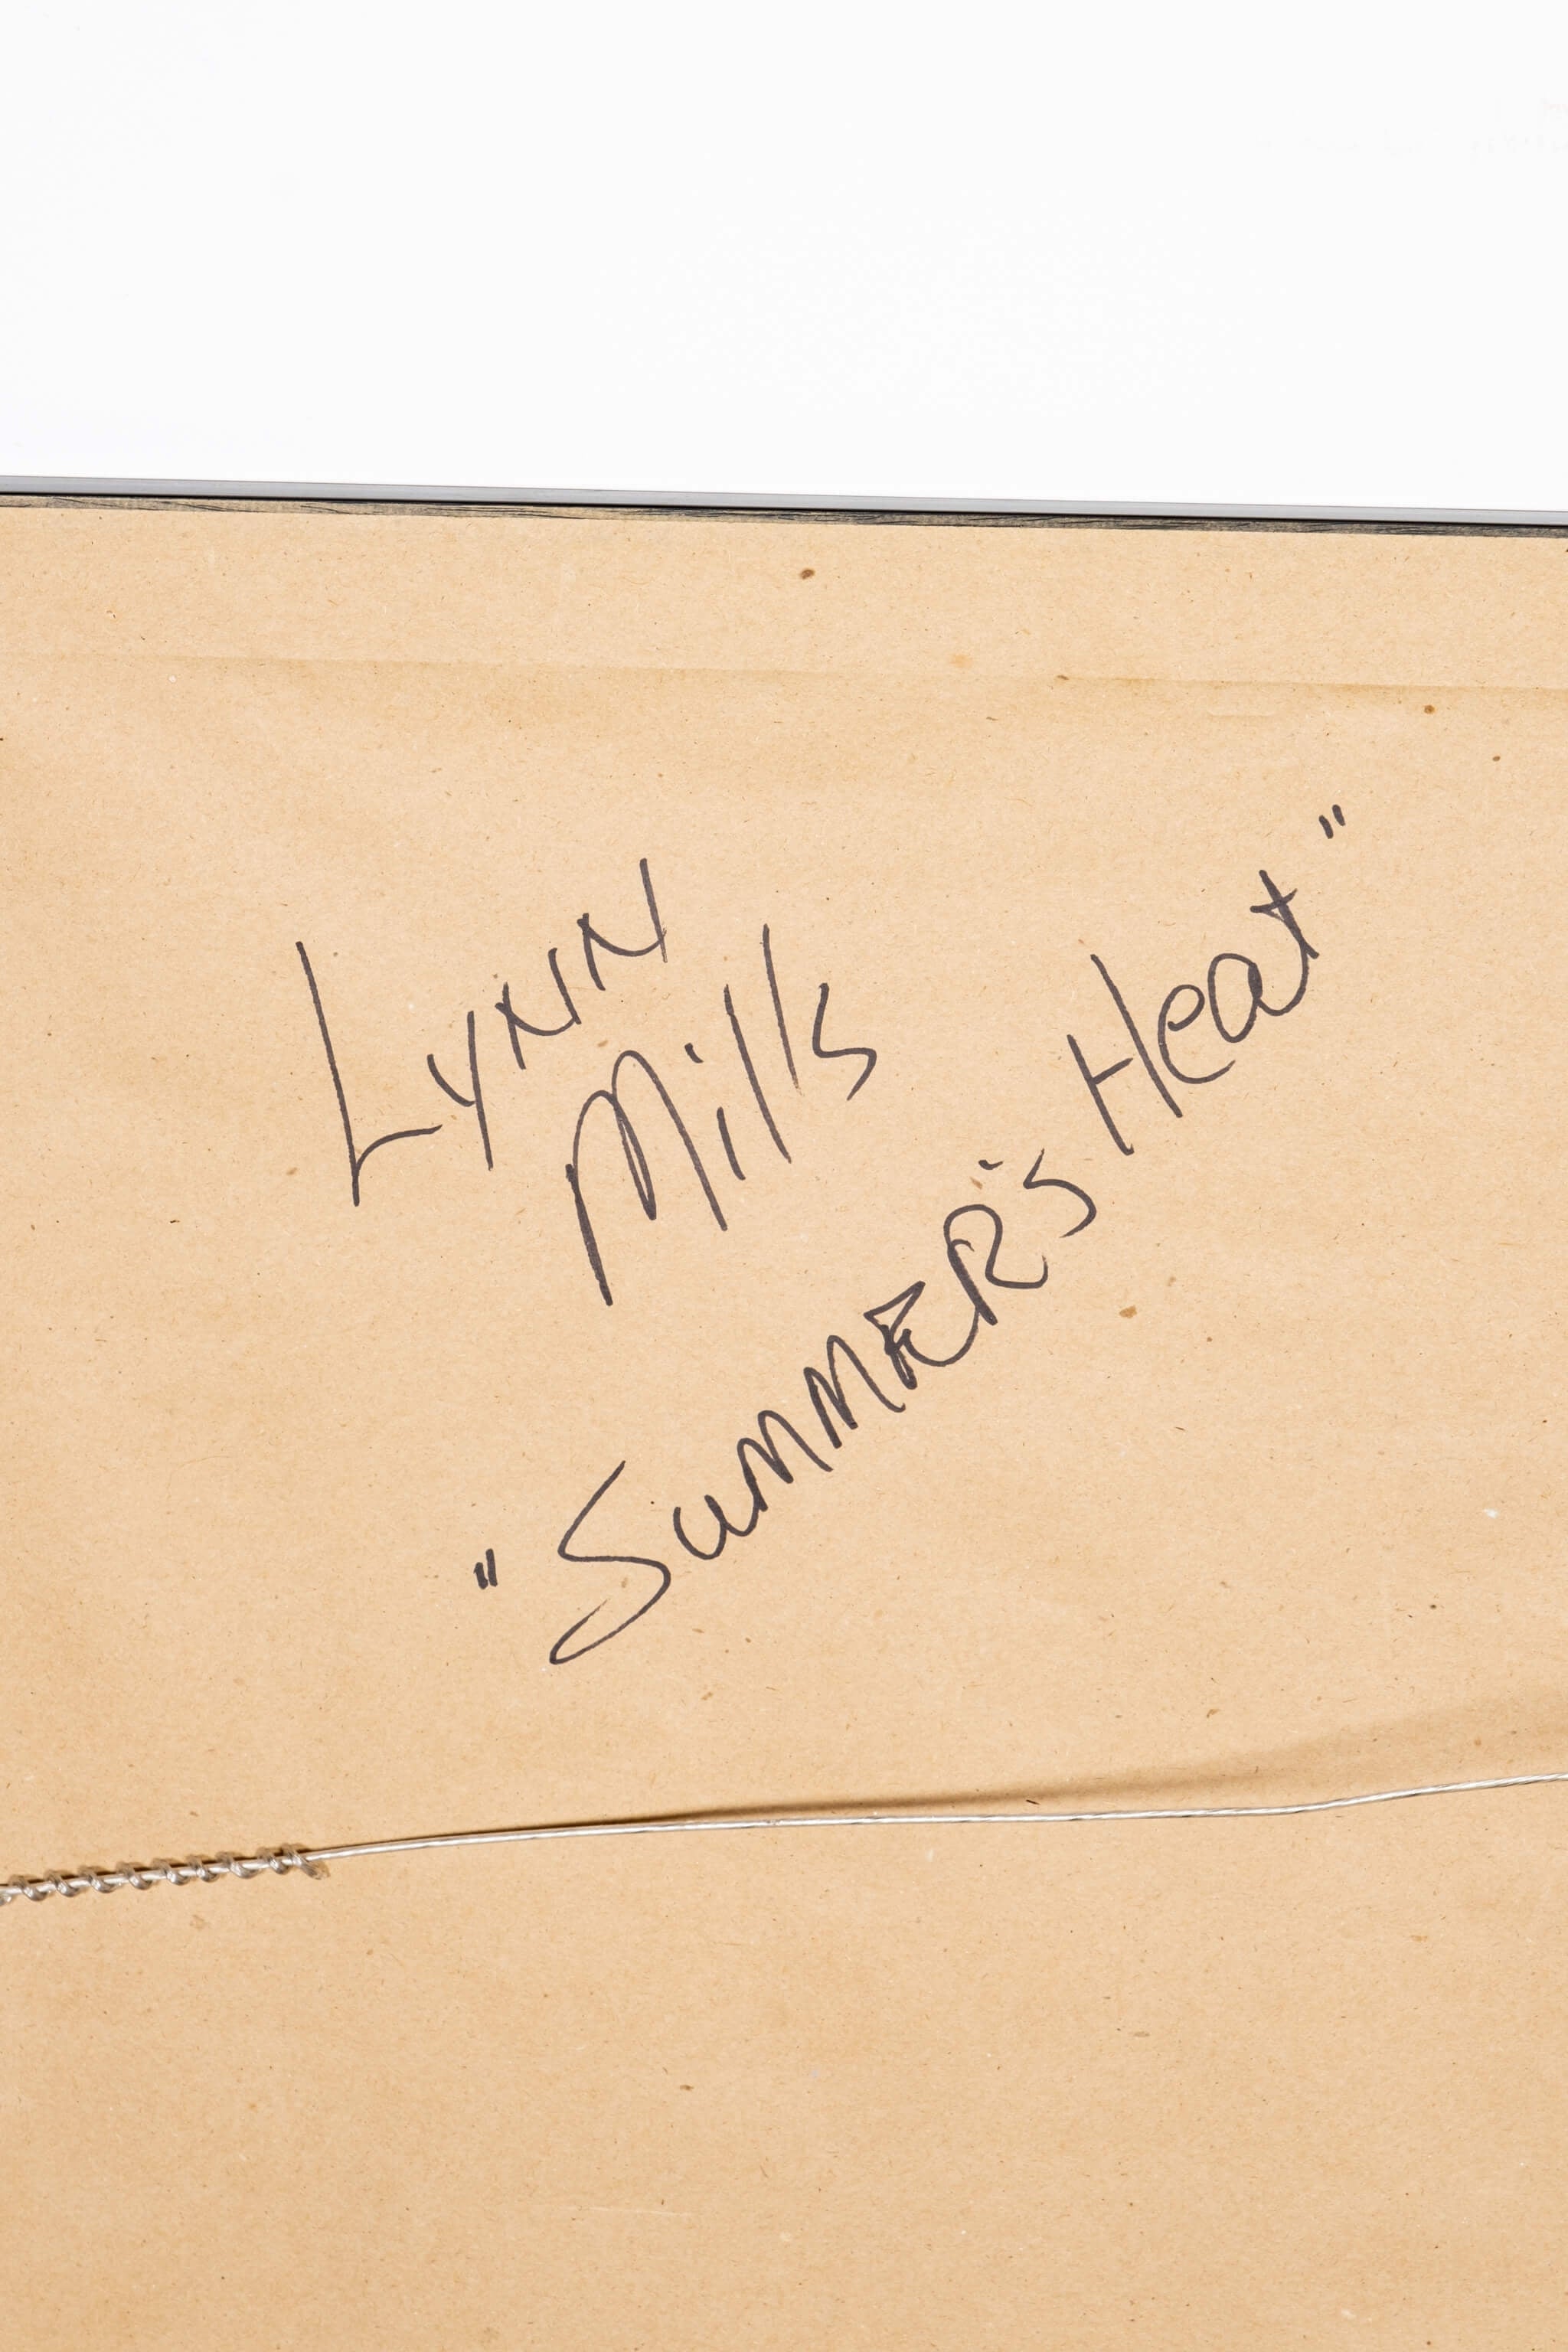 Lynn
Mills
"SuMMER's Heat"